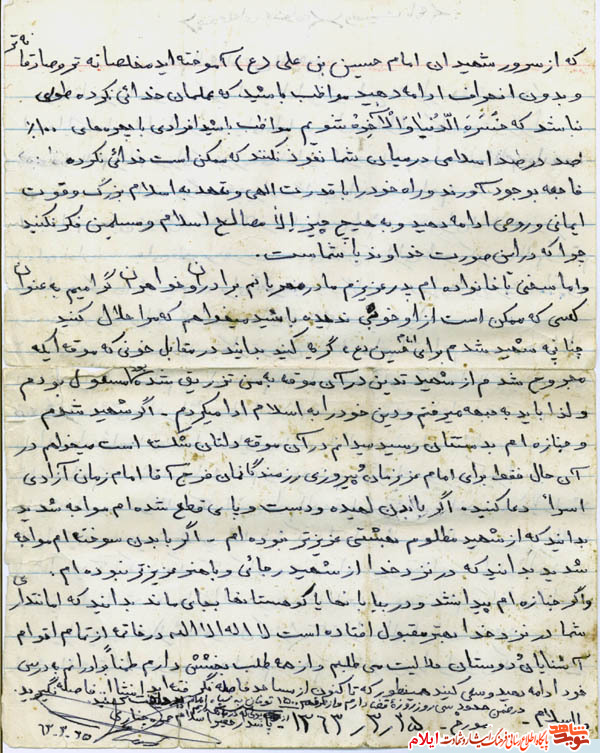 که از سرور شهیدان امام حسین بن علی (ع) آموخته‌اید مخلصانه تر و صادقانه تر
و بدون انحراف ادامه دهید مواظب باشید که عملمان خدائی نکرده طوری
نباشد که خَسِرَ الدُّنیا وَالآخِرَة شویم مواظب باشید افرادی با چهره‌های ۱۰۰٪
صد درصد اسلامی در میان شما نفوذ نکنند که ممکن است خدائی نکرده
فاجعه بوجود آورند و راه خود را با قدرت الهی و تعهد به اسلام بزرگ و قوت
ایمانی و روحی ادامه دهید و به هیچ چیز الا مصالح اسلام و مسلمین فکر نکنید
چرا که در این صورت خداوند با شماست.
و اما سخنی با خانواده ام پدر عزیزم مادر مهربانم برادران و خواهران گرامیم به عنوان
کسی که ممکن است از او خوبی ندیده باشید میخواهم که مرا حلال کنید
چنانچه شهید شدم برای گریه کنید بدانید در مقابل خونی که موقعیکه
مجروح شدم از شهید تدین در آن موقع به من تزریق شده مسئول بودم
و لذا باید به جبهه میرفتم و دین خود را به اسلام ادا میکردم - اگر شهید شدم
و جنازه ام بدستتان رسید میدانم در آن موقع دلتان شکسته است میخواهم در
آن حال فقط برای امام عزیزمان و پیروزی رزمندگانمان فرج آقا امام زمان آزادی
اسراء دعا کنید. اگر با بدن لهیده و دست و پای قطع شده ام مواجه شدید
بدانید که از شهید مظلوم بهشتی عزیزتر نبوده ام - اگر با بدن سوخته ام مواجه
شدید بدانید که در نزد خدا از شهید رجائی و باهنر عزیزتر نبوده ام.
و اگر جنازه ام پیدا نشد و در بیابانها یا کوهستانها بجای ماند بدانید که امانتداری
شما در نزد خدا بهتر مقبول افتاده است لا اله الا الله در خاتمه از تمام اقوام
آشنایان دوستان حلالیت می طلبم و از همه طلب بخشش دارم ضمناً برادرانم به درس
خود ادامه دهید و سعی کنید همینطور که تاکنون از مساجد فاصله نگرفته‌اید انشاا.. فاصله نگیرید
در ضمن حدود سی روز روزه قضا دارم
والسلام - مورخه ۱۳۶۳/۳/۲۵
۶۳.۳.۲۵
پایگاه اطلاع رسانی فرهنگ ایثار و شهادت ایلام
نوید شاهد